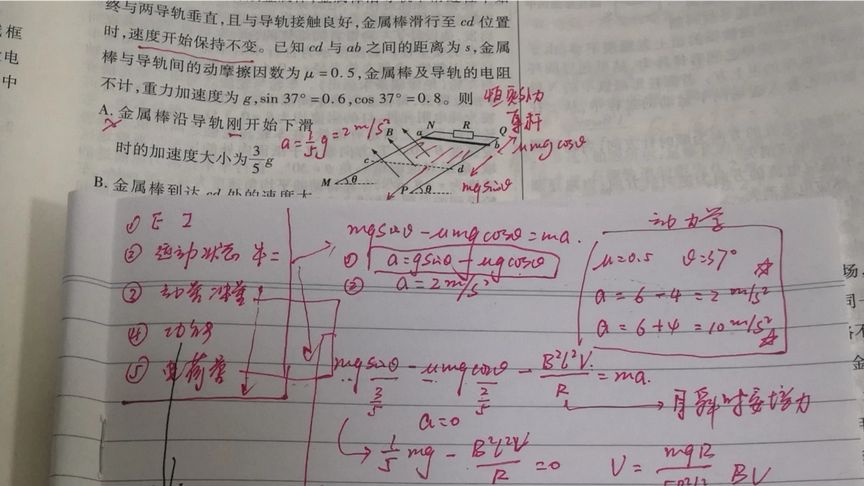 终与两导轨垂直,且与导轨接触良好,金属棒滑行至 cd 位置
时,速度开始保持不变。已知 cd 与 ab 之间的距离为 s,金属
棒与导轨间的动摩擦因数为 μ=0.5,金属棒及导轨的电阻
不计,重力加速度为 g,sin 37°=0.6,cos 37°=0.8。则
A. 金属棒沿导轨刚开始下滑
时的加速度大小为 3/5 g
B. 金属棒到达 cd 处的速度大
框
电
中
a=1/5 g=2m/s²
单杆
μmgcosθ
mgsinθ
N R Q
B a b
c d
M θ P θ
① E I
② 运动状态 牛二
③ 动量冲量
④ 功能
⑤ 电荷量
mgsinθ-μmgcosθ=ma.
① a=gsinθ-μgcosθ
② a=2m/s²
动力学
μ=0.5 θ=37°
a=6-4=2m/s²
a=6+4=10m/s²
mgsinθ-μmgcosθ-B²l²V/R=ma.
3/5 2/5
a=0
→ 1/5 mg - B²l²V/R =0
场,
同